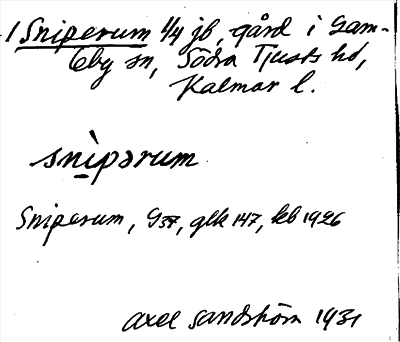 1 Sniperum 4/4 jb, gård i Gam-
leby sn, Södra Tjusts hd,
Kalmar l.
snìpərum
Sniperum, G37, glk 147, kb 1926
Axel Sandström 1931